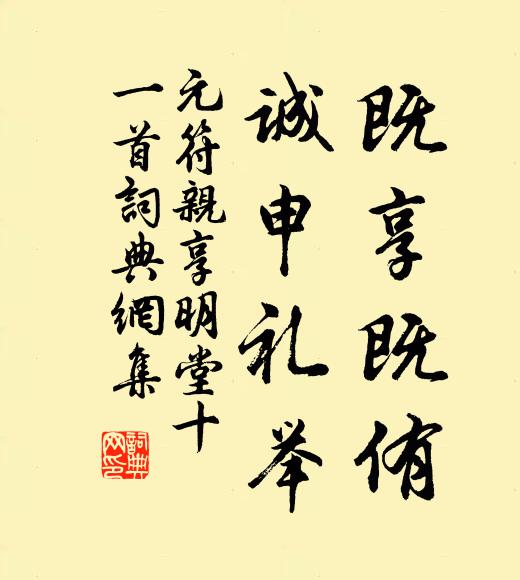 既享既侑
诚申礼举
元符親享明堂十
一首詞典網集
詞典
网印